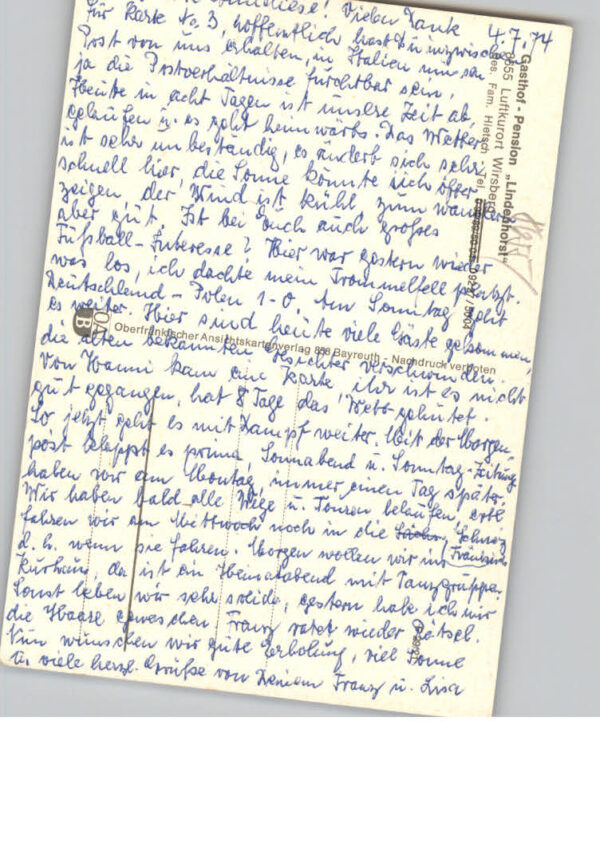 4.7.74
liese! Vielen Dank
für Karte No. 3, hoffentlich hast Du inzwischen
Post von uns erhalten, in Italien
ja die Postverhältnisse furchtbar sein,
Heute in acht Tagen ist unsere Zeit ab,
gelaufen u. es geht heimwärts. Das Wetter
ist sehr unbeständig, es ändert sich sehr
schnell hier, die Sonne könnte sich öfter
zeigen, der Wind ist kühl zum wandern
aber gut. Ist bei Euch auch großes
Fußball-Interesse? Hier war gestern wieder
was los, ich dachte mein Trommelfell platzt.
Deutschland - Polen 1-0. Am Sonntag geht
es weiter. Hier sind heute viele Gäste gekommen,
die alten bekannten Gesichter verschwinden.
Von Hanni kam eine Karte ihr ist es nicht
gut gegangen, hat 8 Tage das Bett gehütet.
So jetzt geht es mit Dampf weiter. Mit der Morgen-
post klappt es prima, Sonnabend u. Sonntag-Zeitung
haben wir am Montag, immer einen Tag später.
Wir haben bald alle Wege u. Touren belaufen, evtl.
fahren wir am Mittwoch noch in die Schweiz
(Fränkische)
d. h. wenn sie fahren. Morgen wollen wir ins
Kurhaus, da ist ein Heimatabend mit Tanzgruppen
Sonst leben wir sehr solide, gestern habe ich mir
die Haare gewaschen. Franz ratet wieder Rätsel.
Nun wünschen wir gute Erholung, viel Sonne
u. viele herzl. Grüße von Deinem Franz u. Lisa
Gasthof - Pension „Lindenhorst"
8655 Luftkurort Wirsberg
Bes. Fam. Hietsch Tel.
09227 / 5004
OA
B
Oberfränkischer Ansichtskartenverlag 858 Bayreuth - Nachdruck verboten